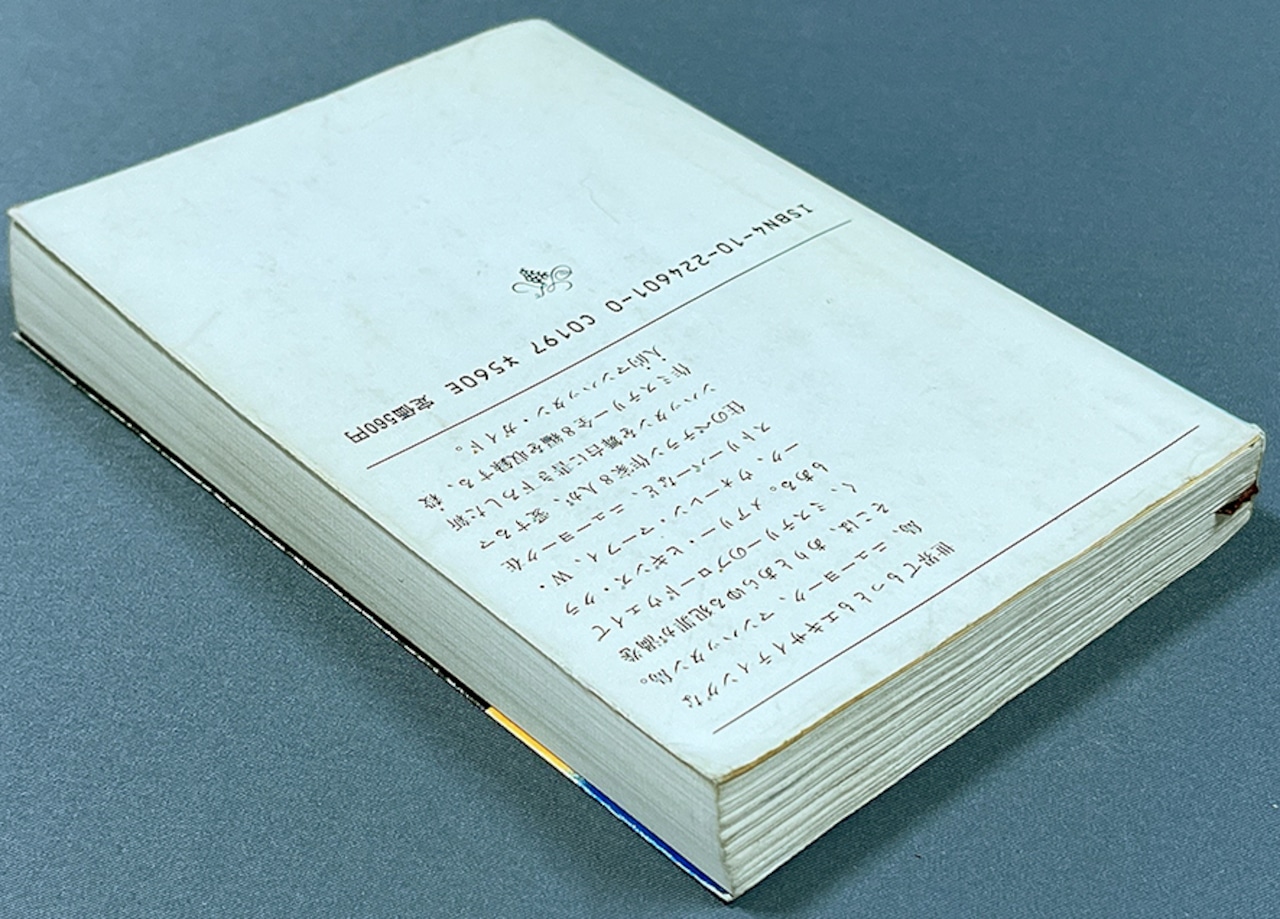 世界でもっともエキサイティングな
島、ニューヨーク、マンハッタン島。
そこは、ありとあらゆる犯罪が渦巻
く、ミステリーのブロードウェイで
もある。メアリー・ヒギンズ・クラ
ーク、ウォーレン・マーフィ、W・
ストリーバーなど、ニューヨーク在
住のベテラン作家8人が、愛するマ
ンハッタンを舞台に書き下ろした新
作ミステリー全8編を収録する、殺
人的マンハッタン・ガイド。
ISBN4-10-224601-0 C0197 ¥560E 定価560円